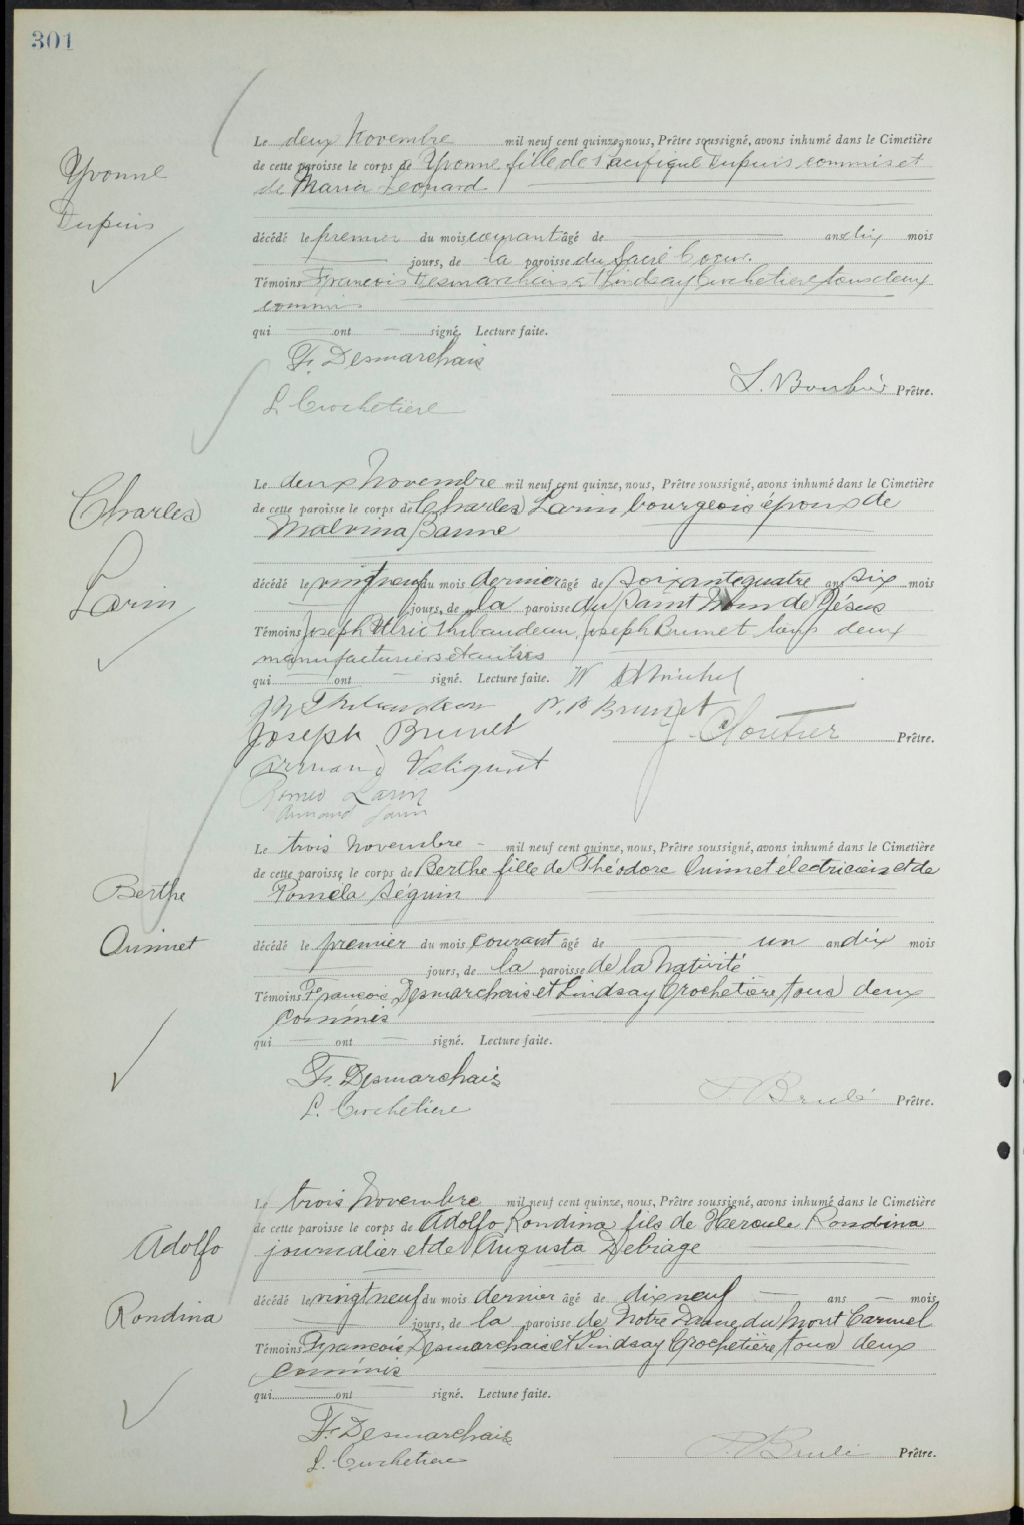 301
Yvonne
Dupuis
Le deux Novembre mil neuf cent quinze, nous, Prêtre soussigné, avons inhumé dans le Cimetière
de cette paroisse le corps de Yvonne fille de Pacifique Dupuis commis et
de Maria Leonard
décédé le premier du mois courant âgé de ans dix mois
jours, de la paroisse du Sacré Coeur.
Témoins François Desmarchais et Lindsay Crochetiere tous deux
commis
qui ont signé. Lecture faite.
F. Desmarchais
L. Crochetière
Prêtre.
Charles
Larin
Le deux Novembre mil neuf cent quinze, nous, Prêtre soussigné, avons inhumé dans le Cimetière
de cette paroisse le corps de Charles Larin bourgeois époux de
Malvina
décédé le vingt neuf du mois dernier âgé de soixante quatre ans six mois
jours, de la paroisse du Saint Nom de Jésus
Témoins Joseph Ulric Thibaudeau, Joseph Brunet tous deux
manufacturiers et autres
qui ont signé. Lecture faite.
Thibaudeau Brunet
Joseph Brunet
J. Cloutier Prêtre.
Armand Valiquet
Romeo Larin
Armand Larin
Berthe
Ouimet
Le trois Novembre mil neuf cent quinze, nous, Prêtre soussigné, avons inhumé dans le Cimetière
de cette paroisse le corps de Berthe fille de Théodore Ouimet électricien et de
Pomela Séguin
décédé le premier du mois courant âgé de un an dix mois
jours, de la paroisse de la Nativité
Témoins François Desmarchais et Lindsay Crochetière tous deux
commis
qui ont signé. Lecture faite.
F. Desmarchais
L. Crochetiere
Brulé Prêtre.
Adolfo
Rondina
Le trois Novembre mil neuf cent quinze, nous, Prêtre soussigné, avons inhumé dans le Cimetière
de cette paroisse le corps de Adolfo Rondina fils de Hercule Rondina
journalier et de Augusta Debiage
décédé le vingt neuf du mois dernier âgé de dix neuf ans mois
jours, de la paroisse de Notre Dame du Mont Carmel
Témoins François Desmarchais et Lindsay Crochetière tous deux
commis
qui ont signé. Lecture faite.
F. Desmarchais
L. Crochetiere
Brulé Prêtre.